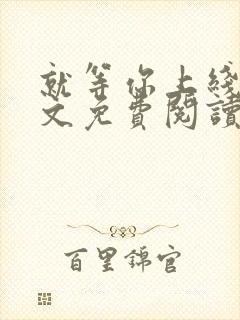 就等你上綫
文免費閱讀
百里錦官